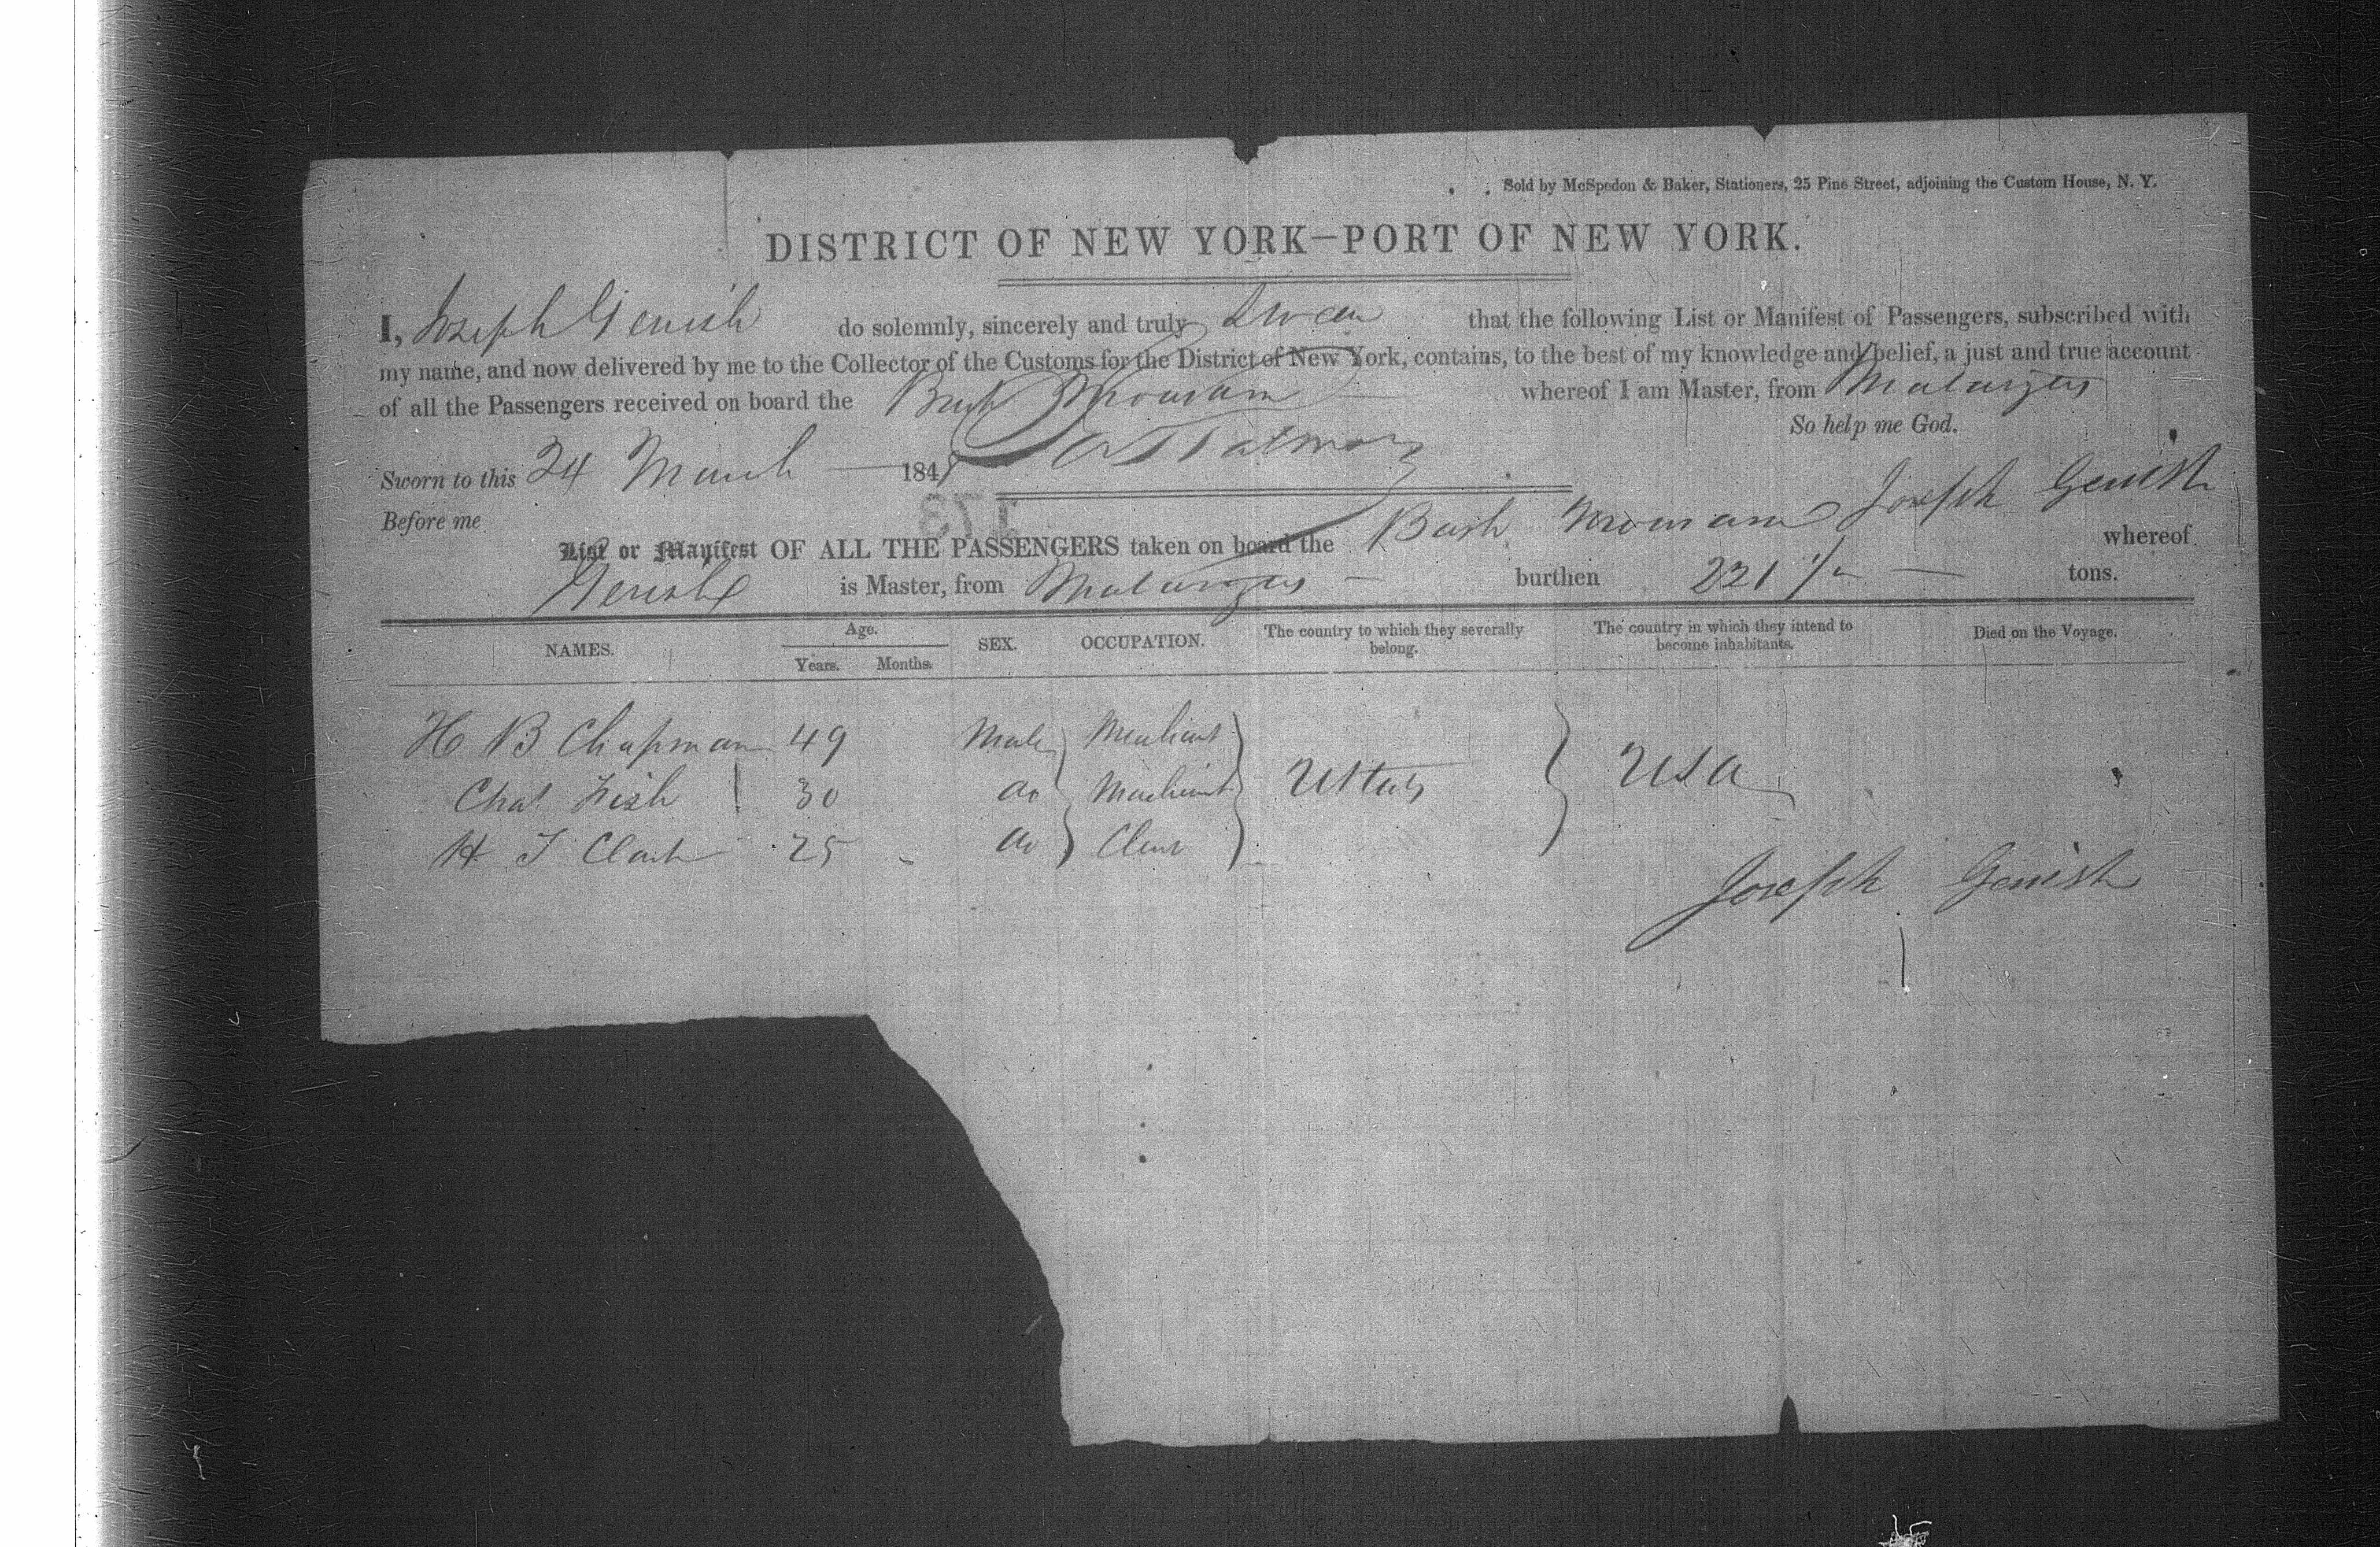 Sold by McSpedon & Baker, Stationers, 25 Pine Street, adjoining the Custom House, N. Y.
DISTRICT OF NEW YORK—PORT OF NEW YORK.
I, Joseph Gerrish do solemnly, sincerely and truly swear that the following List or Manifest of Passengers, subscribed with
my name, and now delivered by me to the Collector of the Customs for the District of New York, contains, to the best of my knowledge and belief, a just and true account
of all the Passengers received on board the whereof I am Master, from Matanzas
So help me God.
Sworn to this 24 March 184
Before me
173
List or Manifest OF ALL THE PASSENGERS taken on board the Joseph Gerrish
whereof
Gerrish is Master, from Matanzas burthen 221 tons.
NAMES. Age. SEX. OCCUPATION. The country to which they severally belong. The country in which they intend to become inhabitants. Died on the Voyage.
Years. Months.
H B Chapman 49 Male Merchant
Chas Fish 30 do Merchant U States USA
H T Clark 25 do Clerk
Joseph Gerrish